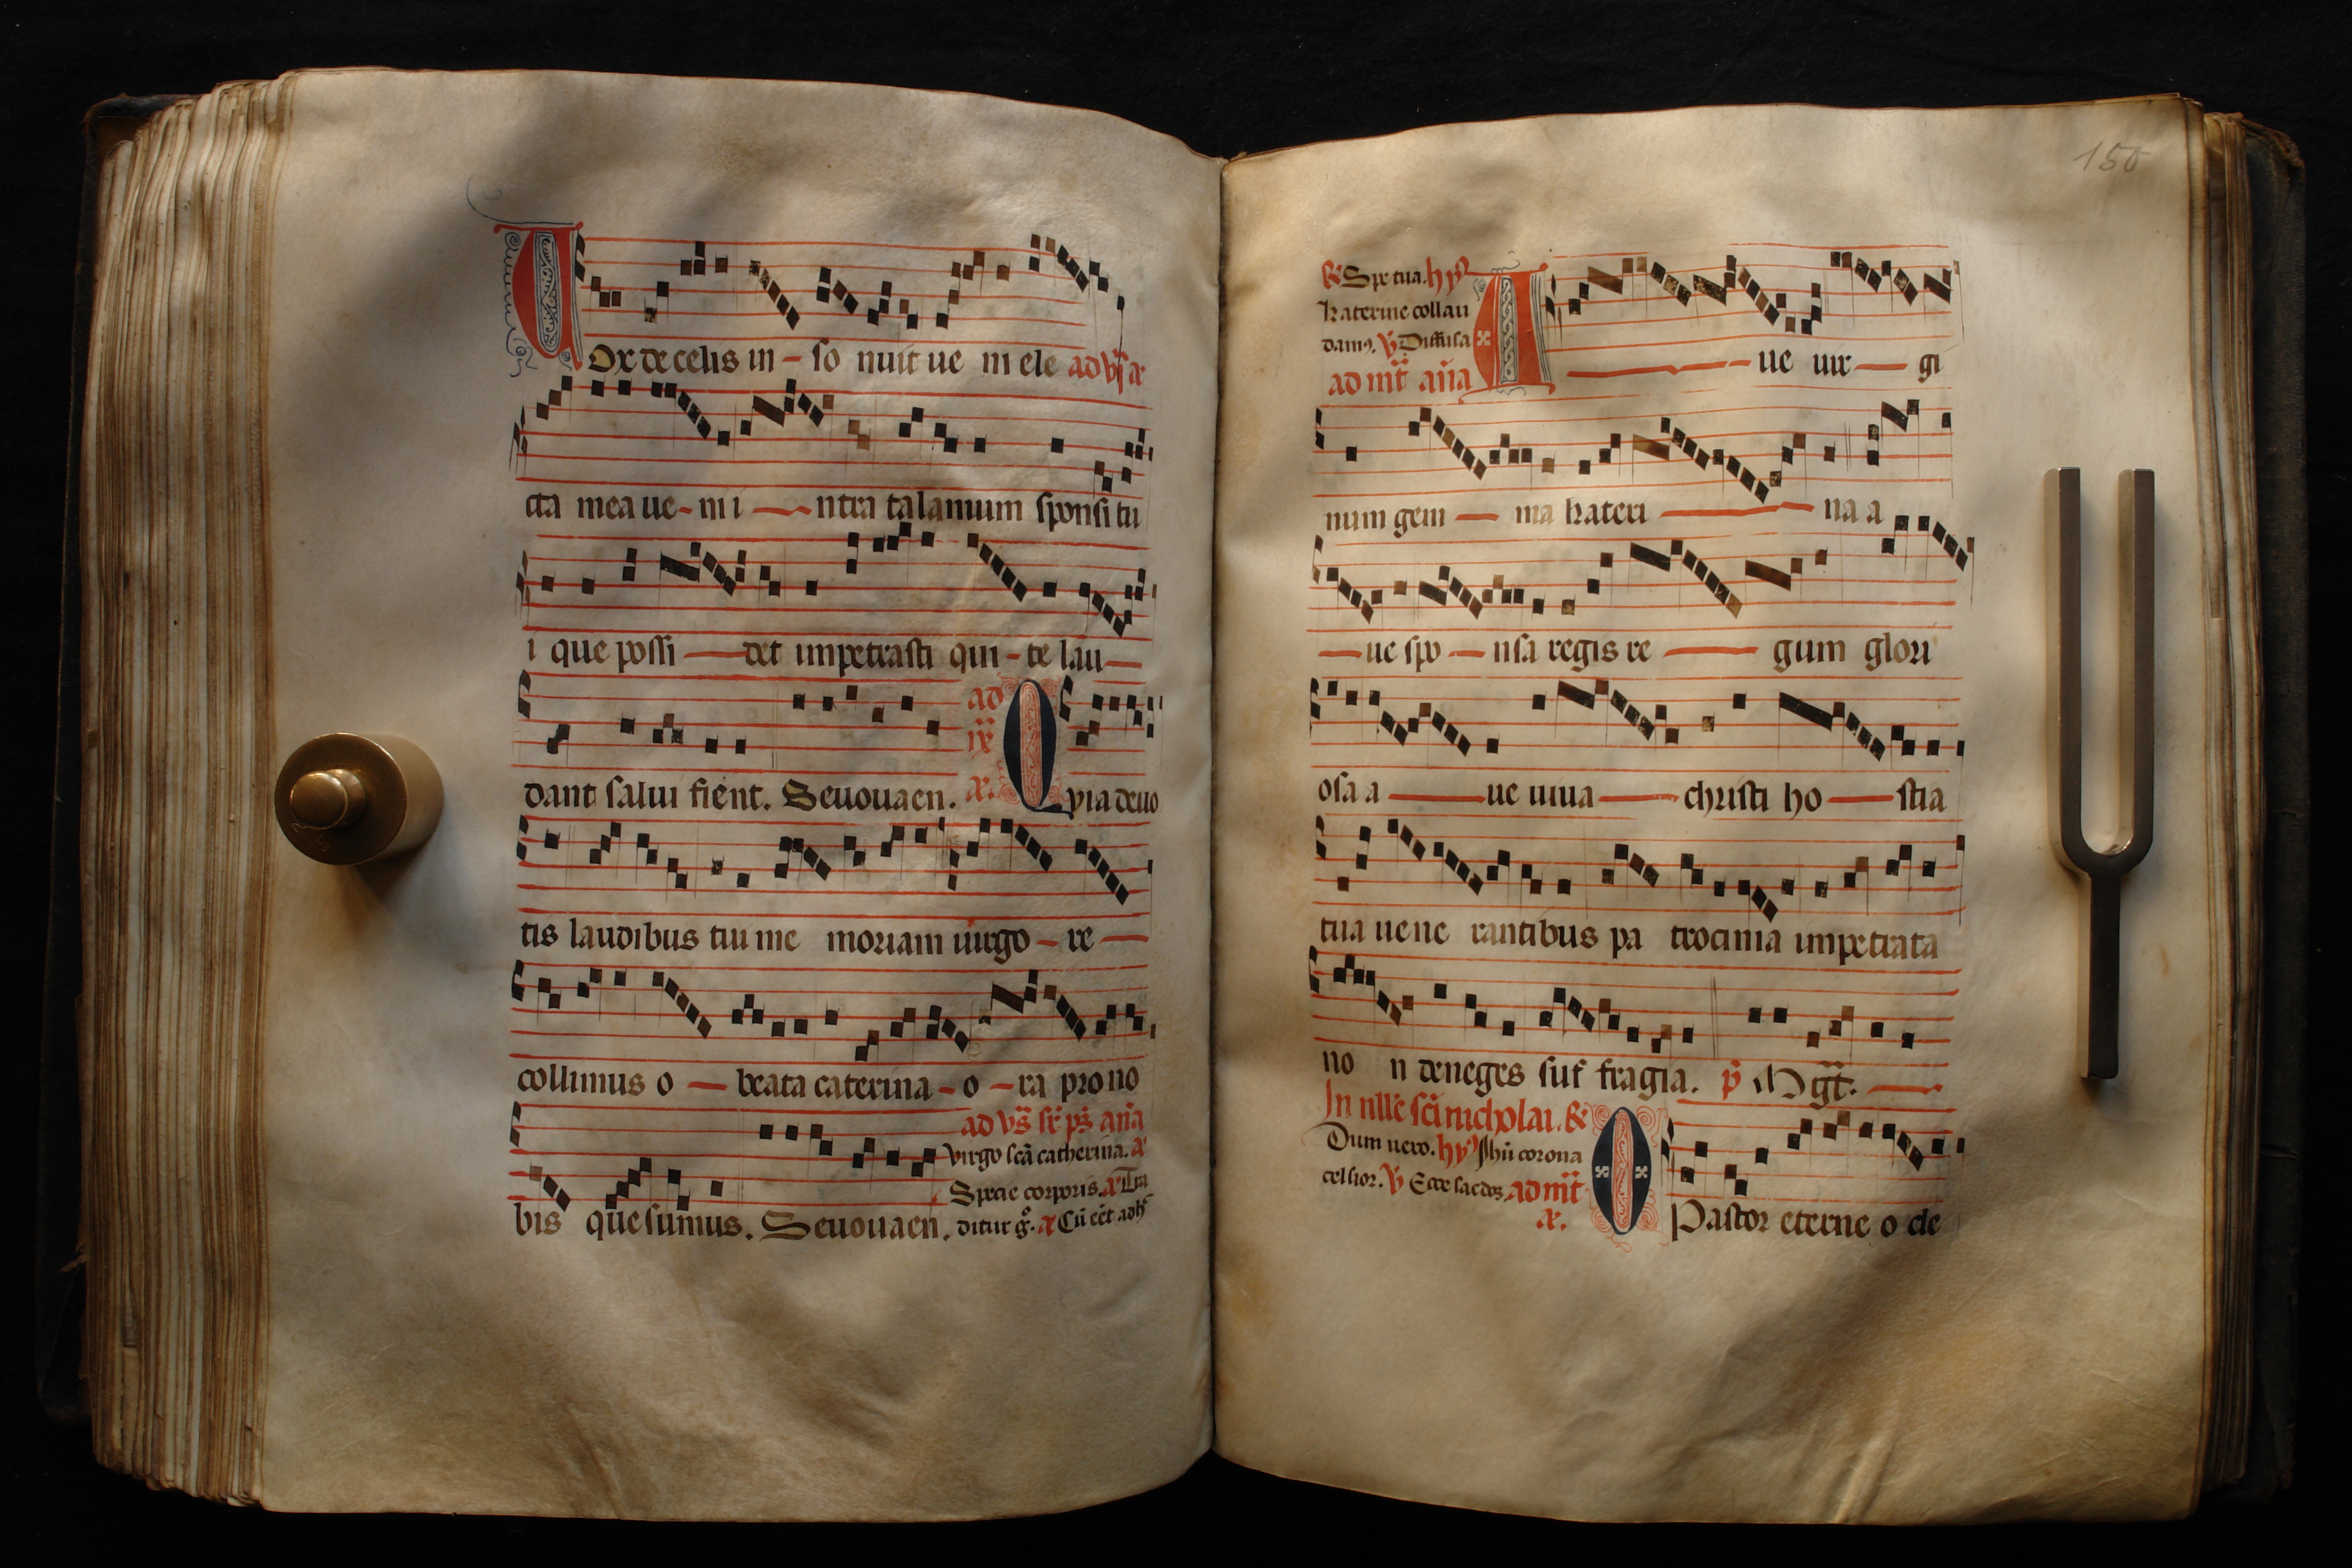 Ox de celis in - so nuit ue ni ele ad vs a
cta mea ue - ni i — ntra talamum sponsi tu
i que possi — det impetrasti qui - te lau —
dant salui fient. Seuouaen.
ad ix a. O pia deuo
tis laudibus tiu me moriam uirgo - re —
collimus o — beata caterina - o - ra pro no
bis quesumus. Seuouaen.
ad vs sr ps aña
Virgo scā catherina. a
Specie corporis. a Tra
ditur g. a Cū cēt adh
150
Spe tua. hy
katerine collau
dam9. V Diffusa
ad mt aña
A — ue uir — gi
num gem — ma kateri — na a
— ue spo — nsa regis re — gum glori
osa a — ue uiua — christi ho — stia
tua uene rantibus pa trocinia impetrata
no n deneges suf fragia. p Mgt. —
In nllē scī nicholai. R
Dum uero. hy Ihū corona
celsior. V Ecce sacdos. ad mt
a.
O Pastor eterne o cle